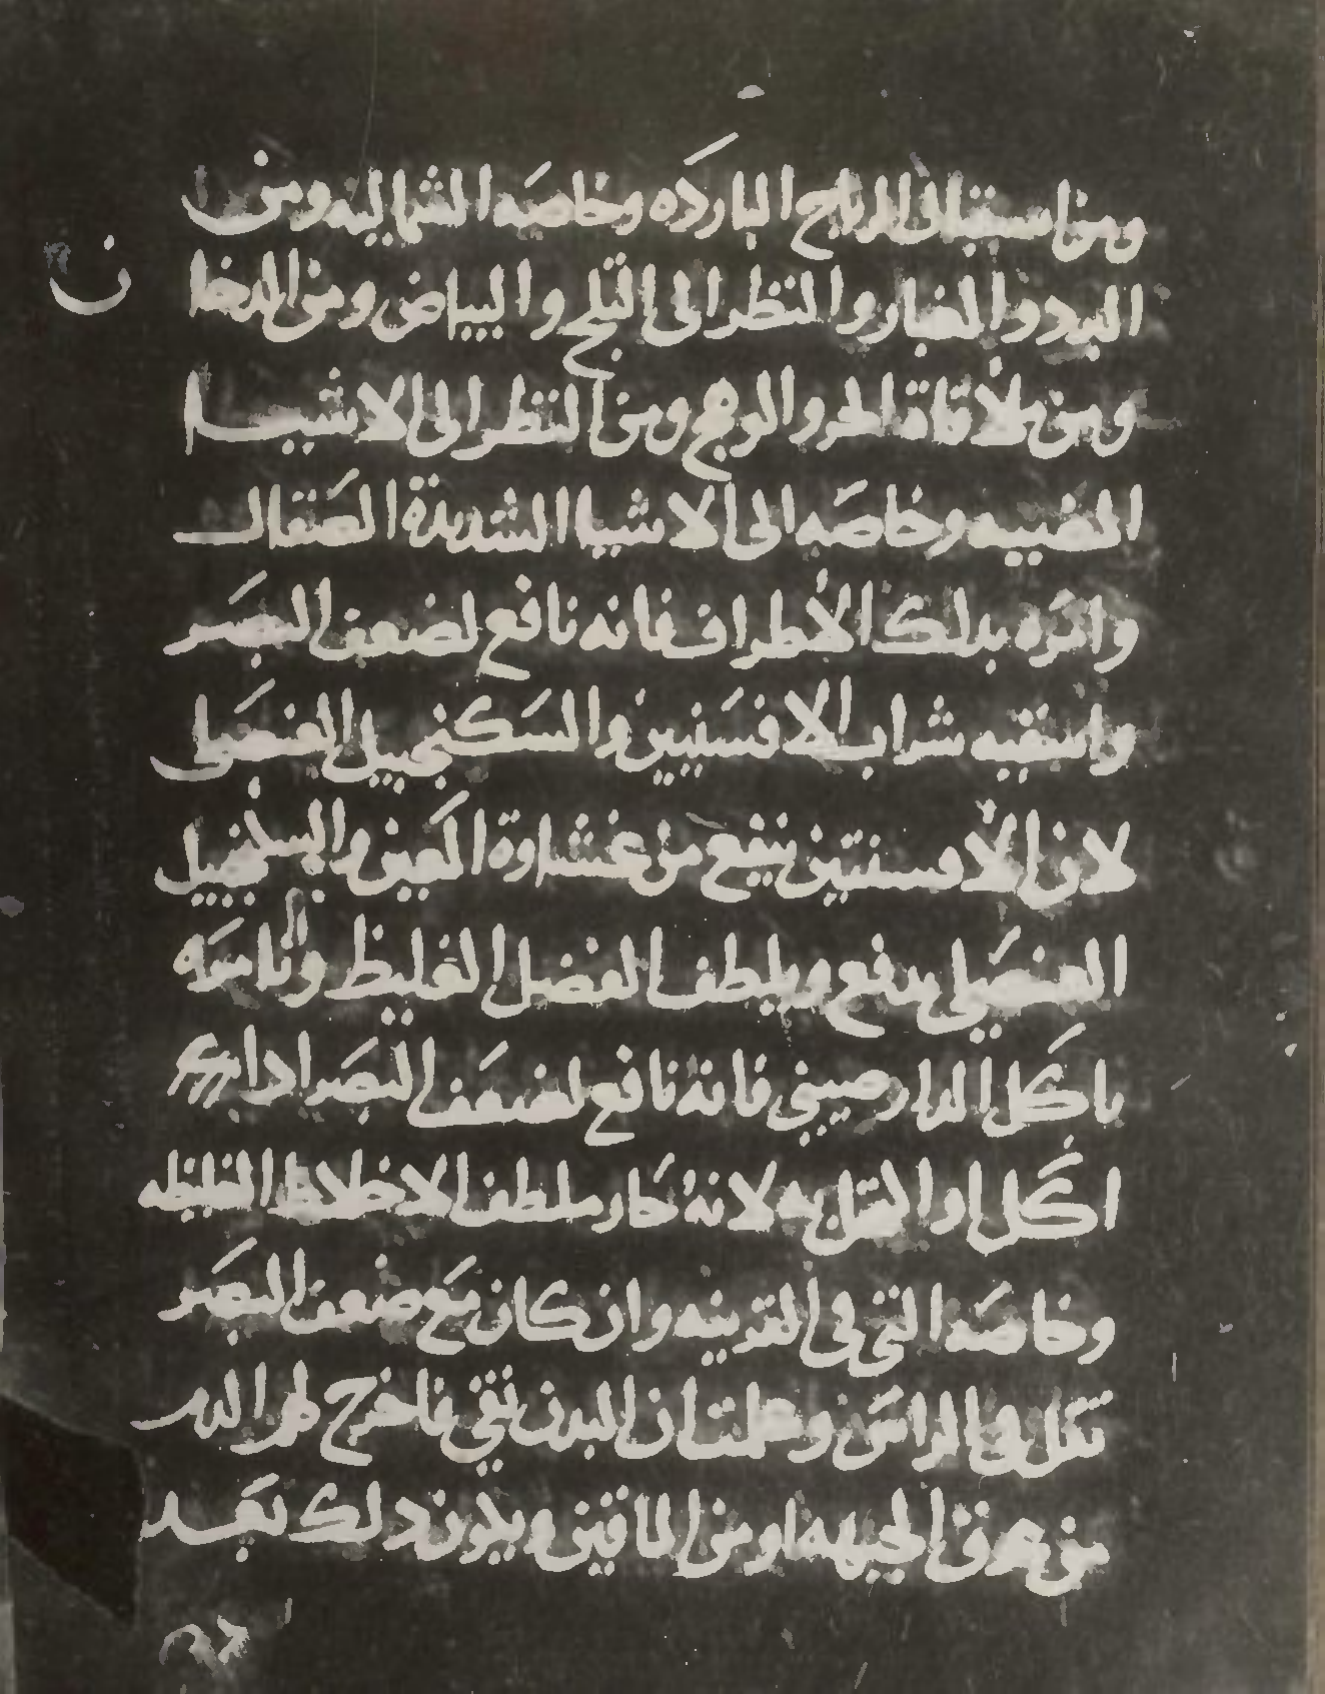 ومن استقبال الرياح الباردة وخاصه الشماليه ومن
البرد والغبار والنظر الى الثلج والبياض ومن الدخا
ن
ومن ملاقاة الحر والوهج ومن النظر الى الاشيا
المضييه وخاصه الى الاشيا الشديدة الصقال
وامره بدلك الاطراف فانه نافع لضعف البصر
واسقيه شراب الافسنتين والسكنجبيل العنصلى
لان الافسنتين ينفع من غشاوة العين والسكنجبيل
العنصلى يدفع ويلطف الفضل الغليظ وتامره
باكل الدارصيني فانه نافع لضعف البصر اذا
اكل او اكتحل به لانه حار ملطف الاخلاط الغليظه
وخاصه التي في القرينه وان كان مع ضعف البصر
ثقل في الراس وعلمت ان البدن نقي فاخرج لهم الدم
من عرق الجبهه او من الماقين ويكون ذلك بعد